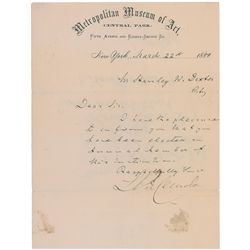 Metropolitan Museum of Art,
CENTRAL PARK.
FIFTH AVENUE AND EIGHTY-SECOND ST.
New York, March 22nd 188
Mr Stanley W. Dexter
City
Dear Sir,
I have the pleasure
to inform you that you
have been elected an
Annual Member of
this Institution.
Respectfully Yours